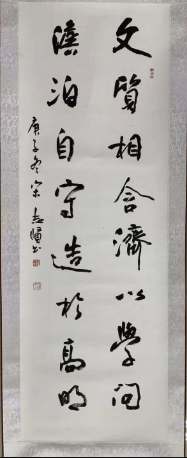 文質相含濟以學問
澹泊自守造於高明
庚子冬宋